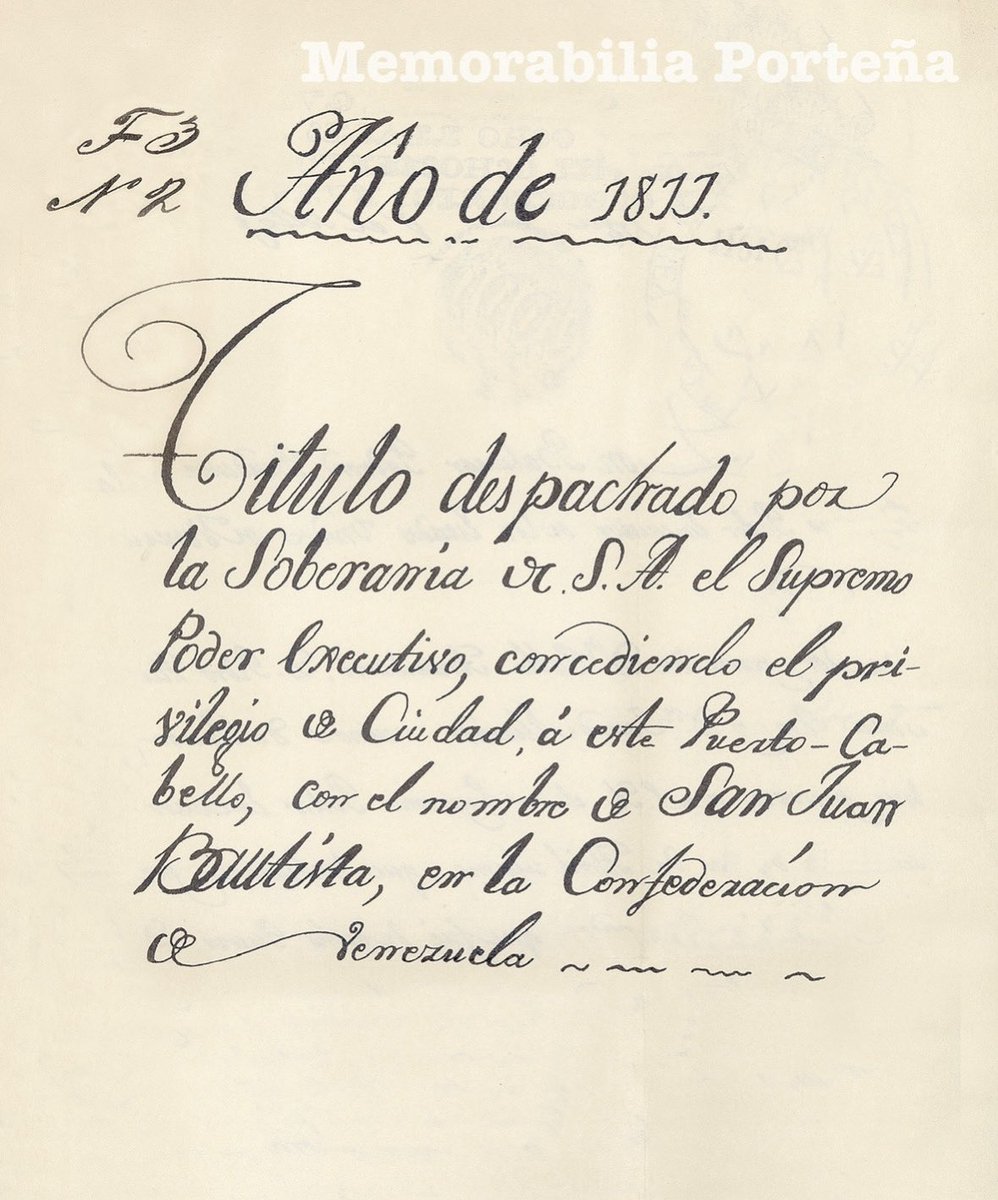 Memorabilia Porteña
F 3
N 2
Año de 1811.
Titulo despachado por
la Soberania de S. A. el Supremo
Poder Executivo, concediendo el pri-
vilegio de Ciudad, á este Puerto-Ca-
bello, con el nombre de San Juan
Bautista, en la Confederación
de Venezuela